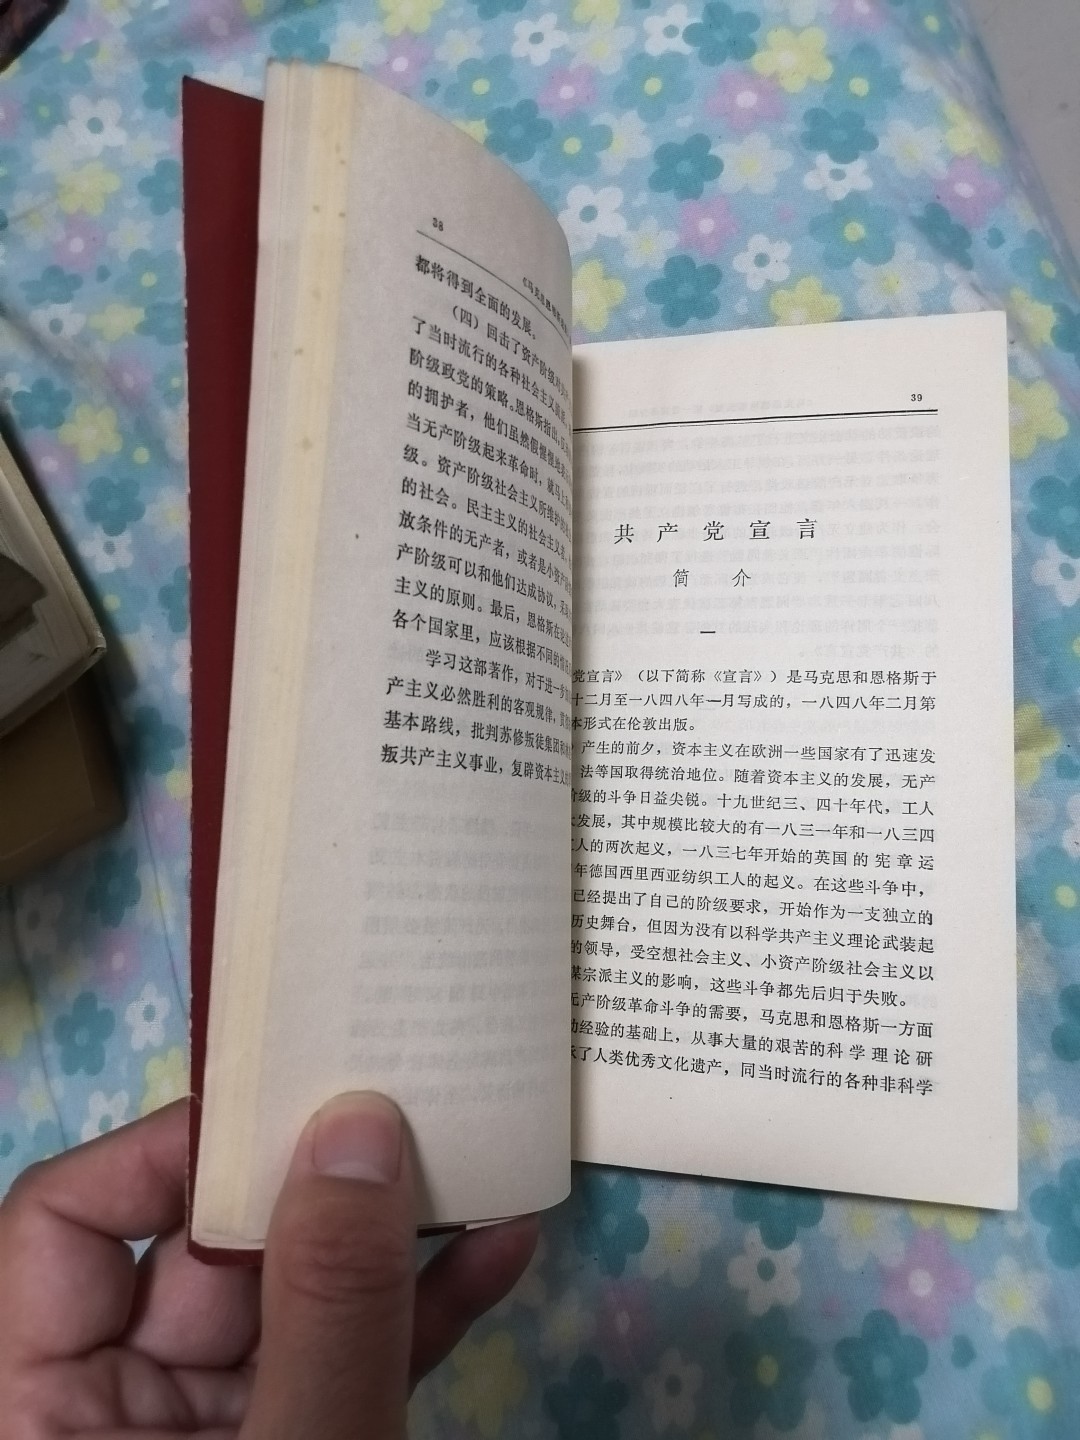 38
都将得到全面的发展。
（四）回击了资产阶级对
了当时流行的各种社会主义
阶级政党的策略。恩格斯指出，
的拥护者，他们虽然假惺惺地表
当无产阶级起来革命时，就马上
级。资产阶级社会主义所维护的
的社会。民主主义的社会主义者，
放条件的无产者，或者是小资产阶
产阶级可以和他们达成协议，采取
主义的原则。最后，恩格斯在论述
各个国家里，应该根据不同的情
学习这部著作，对于进一步
产主义必然胜利的客观规律，
基本路线，批判苏修叛徒集团和
叛共产主义事业，复辟资本主义的
39
共产党宣言
简 介
一
党宣言》（以下简称《宣言》）是马克思和恩格斯于
十二月至一八四八年一月写成的，一八四八年二月第
本形式在伦敦出版。
产生的前夕，资本主义在欧洲一些国家有了迅速发
法等国取得统治地位。随着资本主义的发展，无产
阶级的斗争日益尖锐。十九世纪三、四十年代，工人
发展，其中规模比较大的有一八三一年和一八三四
工人的两次起义，一八三七年开始的英国的宪章运
年德国西里西亚纺织工人的起义。在这些斗争中，
已经提出了自己的阶级要求，开始作为一支独立的
历史舞台，但因为没有以科学共产主义理论武装起
的领导，受空想社会主义、小资产阶级社会主义以
某宗派主义的影响，这些斗争都先后归于失败。
无产阶级革命斗争的需要，马克思和恩格斯一方面
动经验的基础上，从事大量的艰苦的科学理论研
承了人类优秀文化遗产，同当时流行的各种非科学